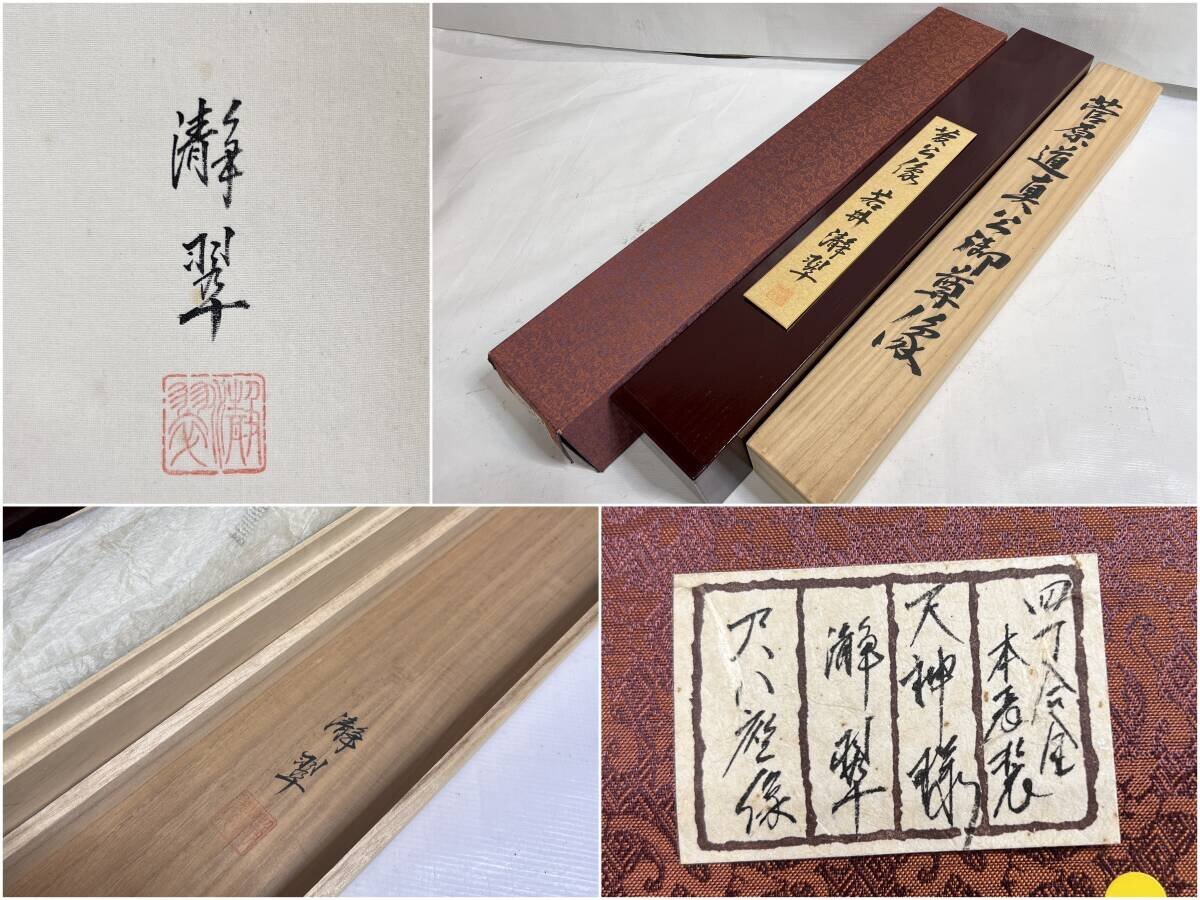 瀞翠
瀞翠
菅公像 若井瀞翠
菅原道真公御尊像
瀞翠
四丁合金
本表装
天神様
瀞翠
尺八座像